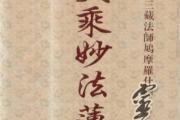 三藏法師鳩摩羅什
靈
乘妙法蓮